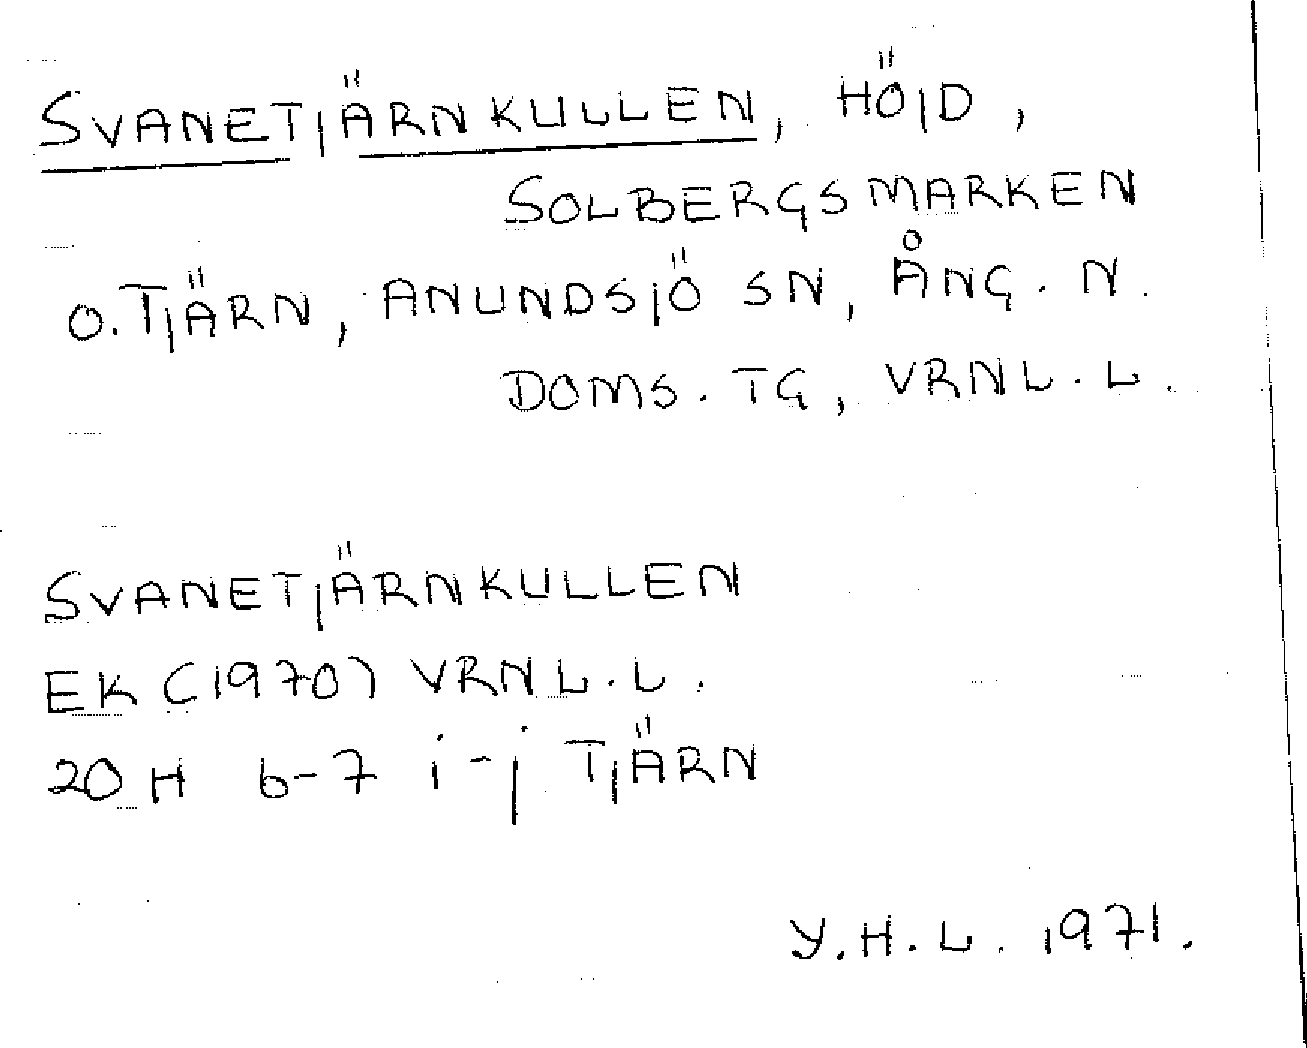 SVANETJÄRNKULLEN, HÖJD,
SOLBERGSMARKEN
O. TJÄRN, ANUNDSJÖ SN, ÅNG. N.
DOMS. TG, VRNL. L.
SVANETJÄRNKULLEN
EK (1970) VRNL. L.
20 H 6-7 i-j TJÄRN
Y. H. L. 1971.